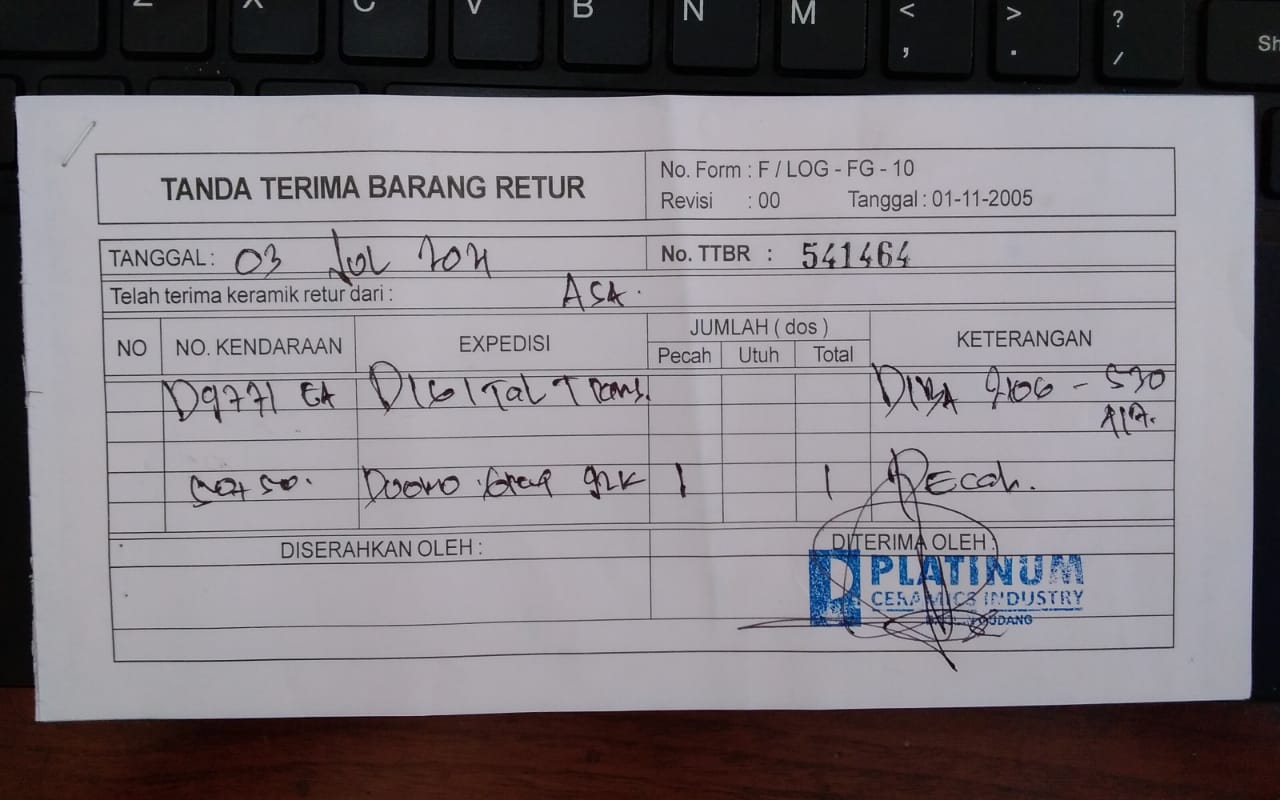 Z X C V B N M < , > . ? / Sh
TANDA TERIMA BARANG RETUR
No. Form : F / LOG - FG - 10
Revisi : 00 Tanggal : 01-11-2005
TANGGAL : 03 Jul 2021
No. TTBR : 541464
Telah terima keramik retur dari : ASA.
NO NO. KENDARAAN EXPEDISI JUMLAH ( dos ) KETERANGAN
Pecah Utuh Total
D9771 EA DIGITAL Trans.
1 1 Pecah.
DISERAHKAN OLEH : DITERIMA OLEH :
PLATINUM
CERAMICS INDUSTRY